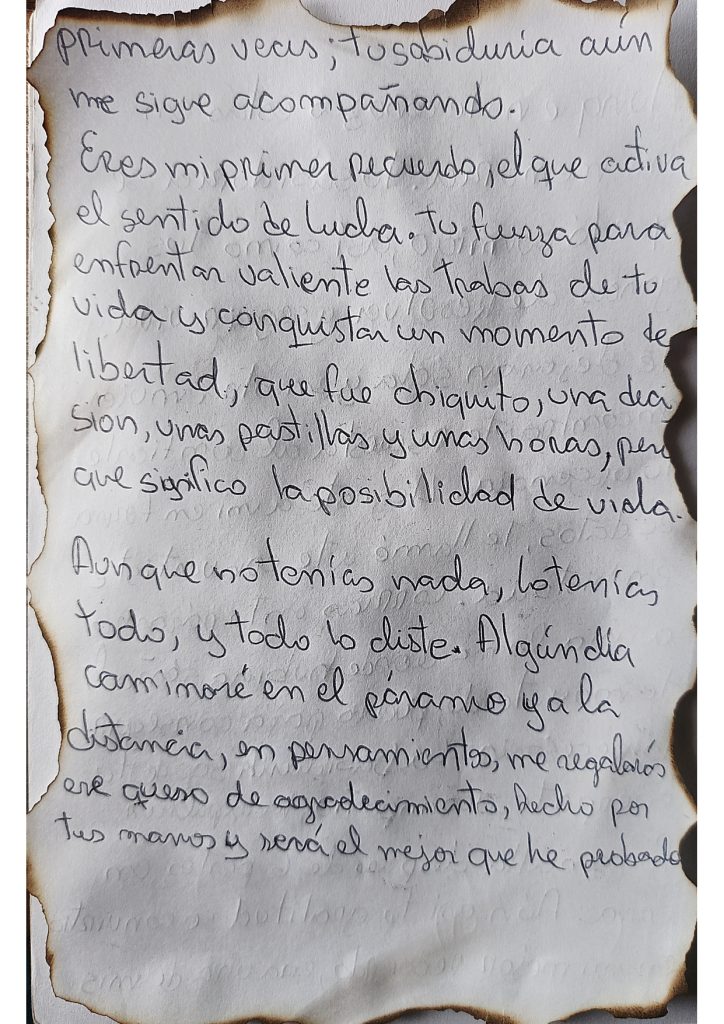 primeras veces; tu sabiduría aún
me sigue acompañando.
Eres mi primer recuerdo, el que activa
el sentido de lucha. Tu fuerza para
enfrentar valiente las trabas de tu
vida y conquistar un momento de
libertad, que fue chiquito, una deci
sión, unas pastillas y unas horas, pero
que significo la posibilidad de vida.
Aunque no tenías nada, lo tenías
todo, y todo lo diste. Algún día
caminaré en el páramo y a la
distancia, en pensamientos, me regalarás
ese queso de agradecimiento, hecho por
tus manos y será el mejor que he probado